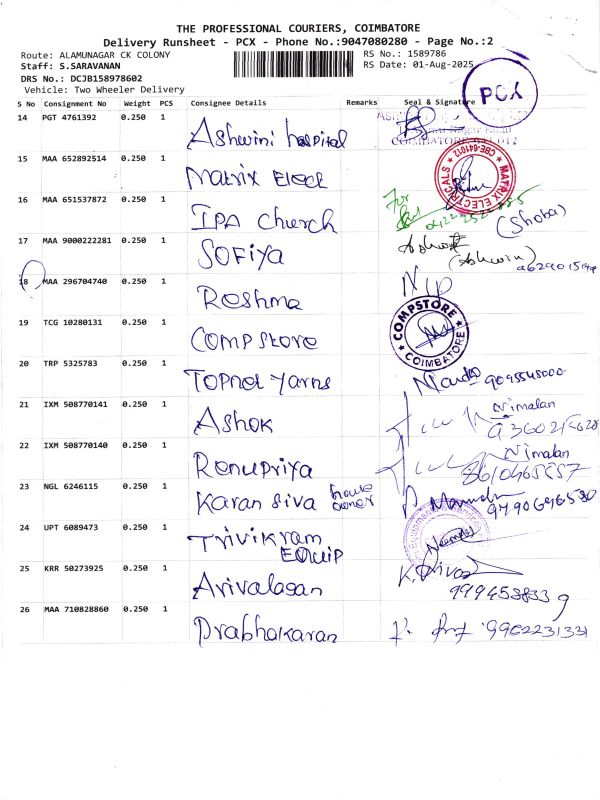 THE PROFESSIONAL COURIERS, COIMBATORE
Delivery Runsheet - PCX - Phone No.:9047080280 - Page No.:2
Route: ALAMUNAGAR CK COLONY
RS No.: 1589786
Staff: S.SARAVANAN
RS Date: 01-Aug-2025
DRS No.: DCJB158978602
Vehicle: Two Wheeler Delivery
PCX
S No Consignment No Weight PCS Consignee Details Remarks Seal & Signature
14 PGT 4761392 0.250 1 Ashwini hospital
15 MAA 652892514 0.250 1 Matrix Elect
MATRIX ELECTRICALS CBE-641012
16 MAA 651537872 0.250 1 IPA Church For
(Shoba)
17 MAA 9000222281 0.250 1 SOFiYA
(Ashwin)
18 MAA 296704740 0.250 1 Reshma
19 TCG 10280131 0.250 1 COMPStore
COMPSTORE COIMBATORE
20 TRP 5325783 0.250 1
21 IXM 508770141 0.250 1 Ashok Nimalan
22 IXM 508770140 0.250 1 Renupriya Nimalan
23 NGL 6246115 0.250 1 Karan Siva house owner
24 UPT 6089473 0.250 1 Trivikram
EQUIP
25 KRR 50273925 0.250 1 Arivalagan
26 MAA 710828860 0.250 1 Prabhakaran